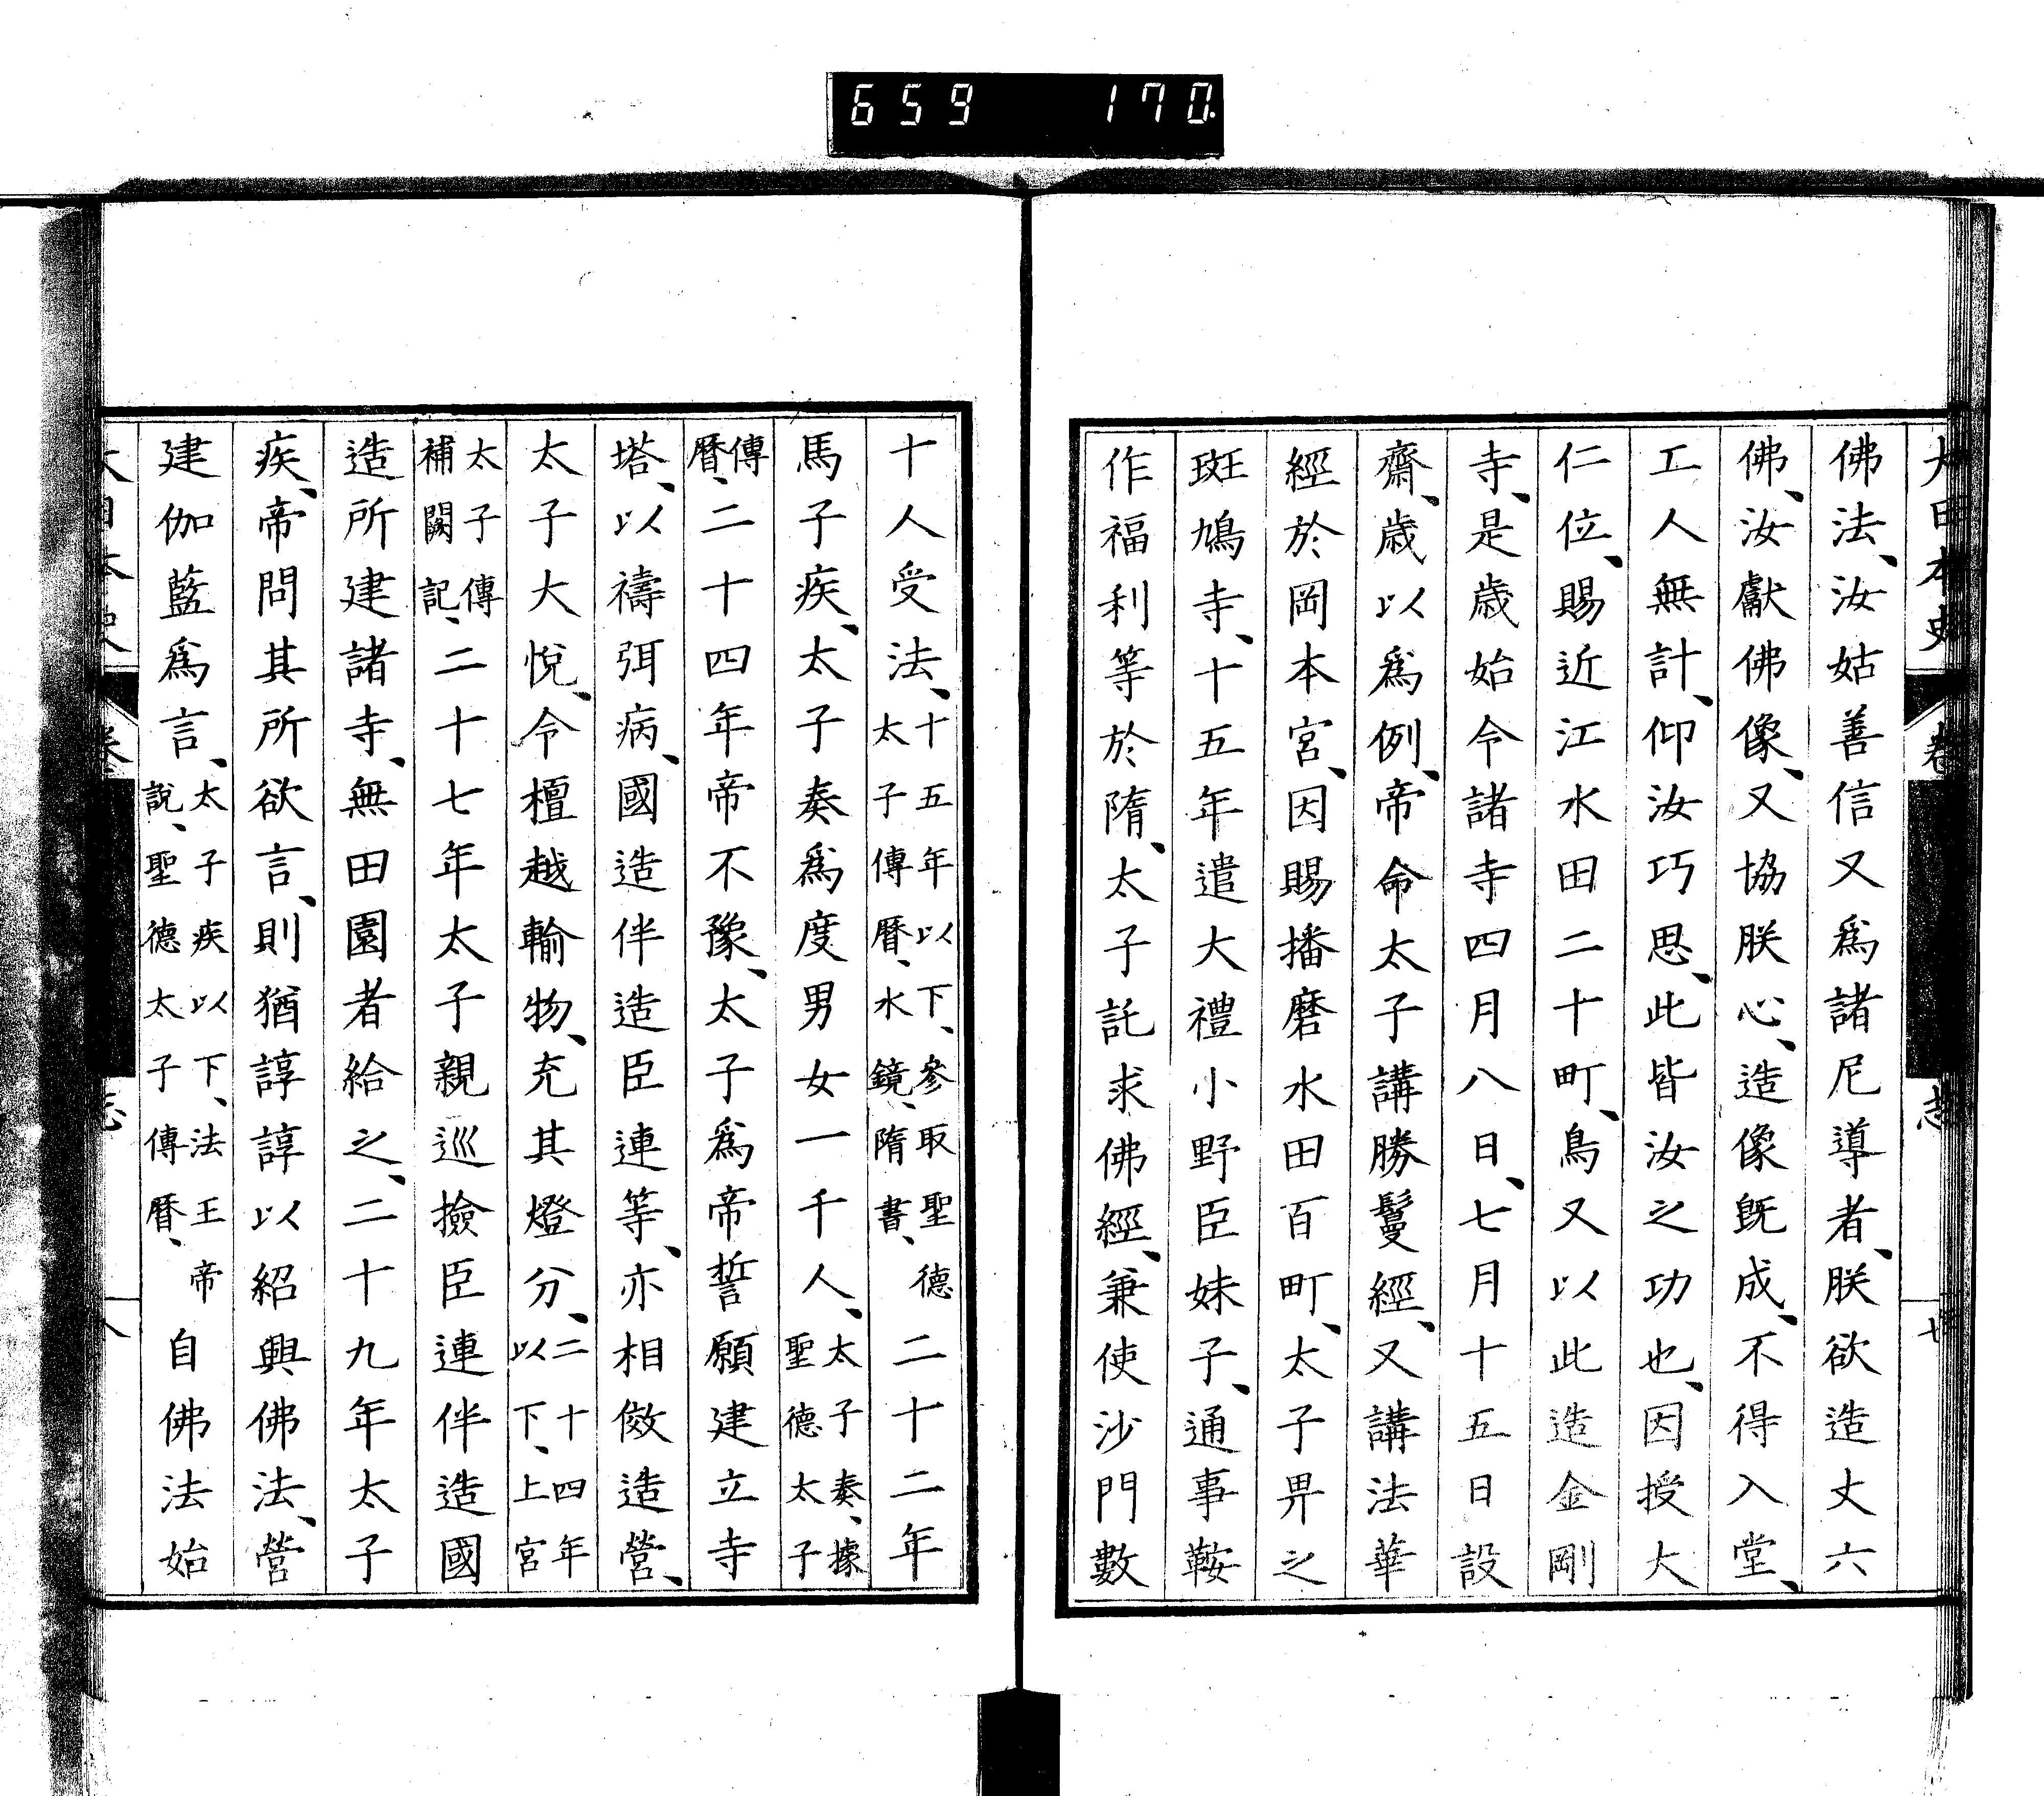 659 170
大日本史 卷 志 七
佛法、汝姑善信又爲諸尼導者、朕欲造丈六
佛、汝獻佛像、又協朕心、造像既成、不得入堂、
工人無計、仰汝巧思、此皆汝之功也、因授大
仁位、賜近江水田二十町、鳥又以此造金剛
寺、是歳始令諸寺四月八日、七月十五日設
齋、歳以爲例、帝命太子講勝鬘經、又講法華
經於岡本宮、因賜播磨水田百町、太子畀之
斑鳩寺、十五年遣大禮小野臣妹子、通事鞍
作福利等於隋、太子託求佛經、兼使沙門數
十人受法、十五年以下、參取聖德太子傳曆、水鏡、隋書、二十二年
馬子疾、太子奏爲度男女一千人、太子奏、據聖德太子
傳曆、二十四年帝不豫、太子爲帝誓願建立寺
塔、以禱弭病、國造伴造臣連等、亦相傚造營、
太子大悅、令檀越輸物、充其燈分、二十四年以下、上宮
太子傳補闕記、二十七年太子親巡撿臣連伴造國
造所建諸寺、無田園者給之、二十九年太子
疾、帝問其所欲言、則猶諄諄以紹興佛法、營
建伽藍爲言、太子疾以下、法王帝說、聖德太子傳曆、自佛法始
大日本史 卷 志 八